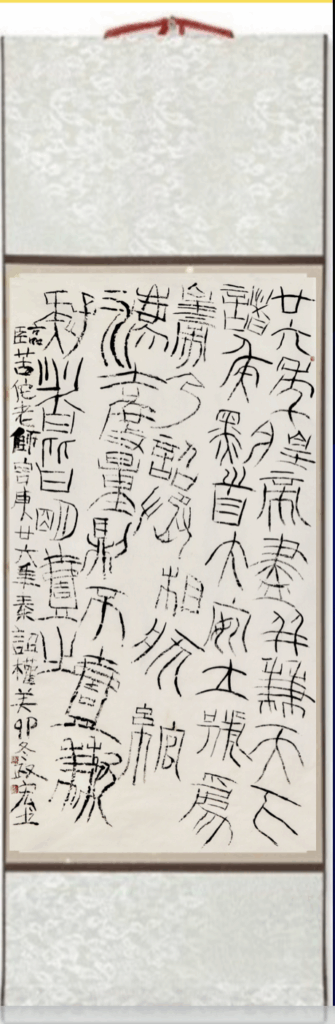 廿六年皇帝盡并兼天下
諸矦黔首大安立號為
皇帝乃詔丞相狀綰
灋度量則不壹歉
疑者皆明壹之
臨苦佗老師廿六年秦詔權癸卯冬